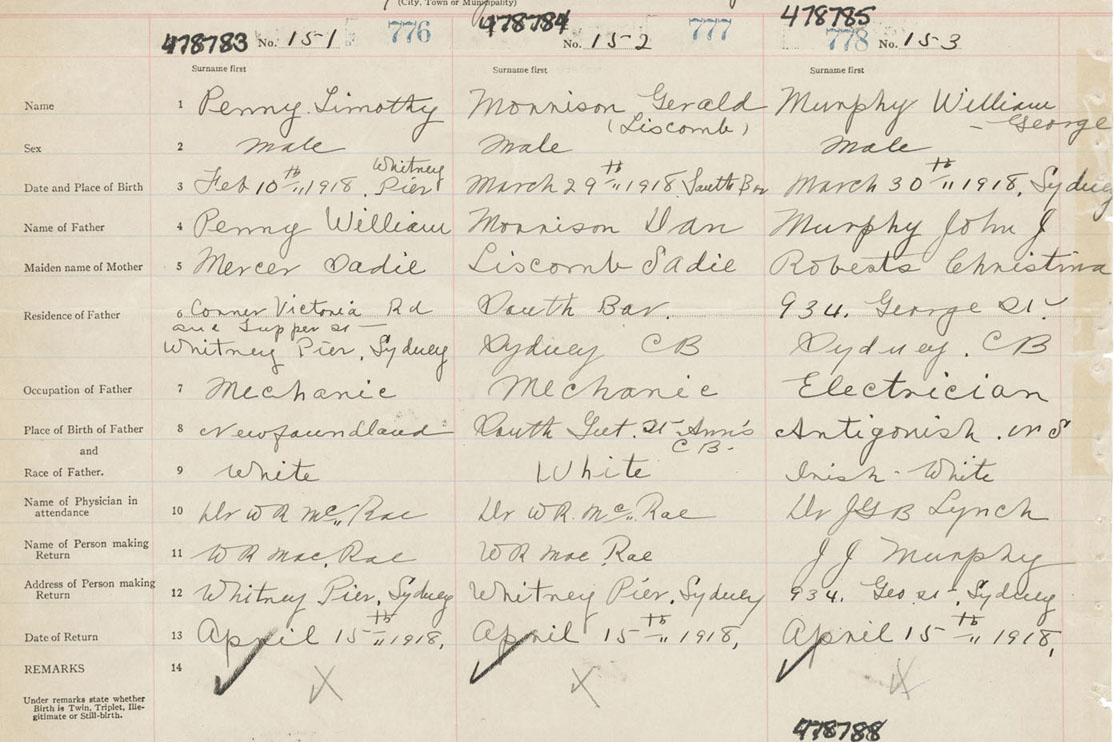 (City, Town or Municipality)
478783 No. 151 776 478784 No. 152 777 478785 778 No. 153
Surname first Surname first Surname first
Name 1 Penny Timothy Morrison Gerald (Liscomb) Murphy William - George
Sex 2 male Male male
Date and Place of Birth 3 Feb 10th 1918. Whitney Pier March 29th 1918 South Bar March 30th 1918, Sydney
Name of Father 4 Penny William Morrison Dan Murphy John J
Maiden name of Mother 5 Mercer Sadie Liscomb Sadie Roberts Christina
Residence of Father 6 Corner Victoria Rd South Bar. 934. George St.
and Tupper St
Whitney Pier, Sydney Sydney CB Sydney. CB
Occupation of Father 7 Mechanic Mechanic Electrician
Place of Birth of Father 8 Newfoundland South Gut. St Ann's C B. Antigonish. N S
and
Race of Father. 9 White White Irish - White
Name of Physician in attendance 10 Dr W R Mc Rae Dr W R. Mc Rae Dr J G B Lynch
Name of Person making Return 11 W R Mac Rae W R Mac Rae J J Murphy
Address of Person making Return 12 Whitney Pier, Sydney Whitney Pier, Sydney 934. Geo St, Sydney
Date of Return 13 April 15th 1918, April 15th 1918, April 15th 1918,
REMARKS 14
Under remarks state whether
Birth is Twin, Triplet, Ille-
gitimate or Still-birth.
478788